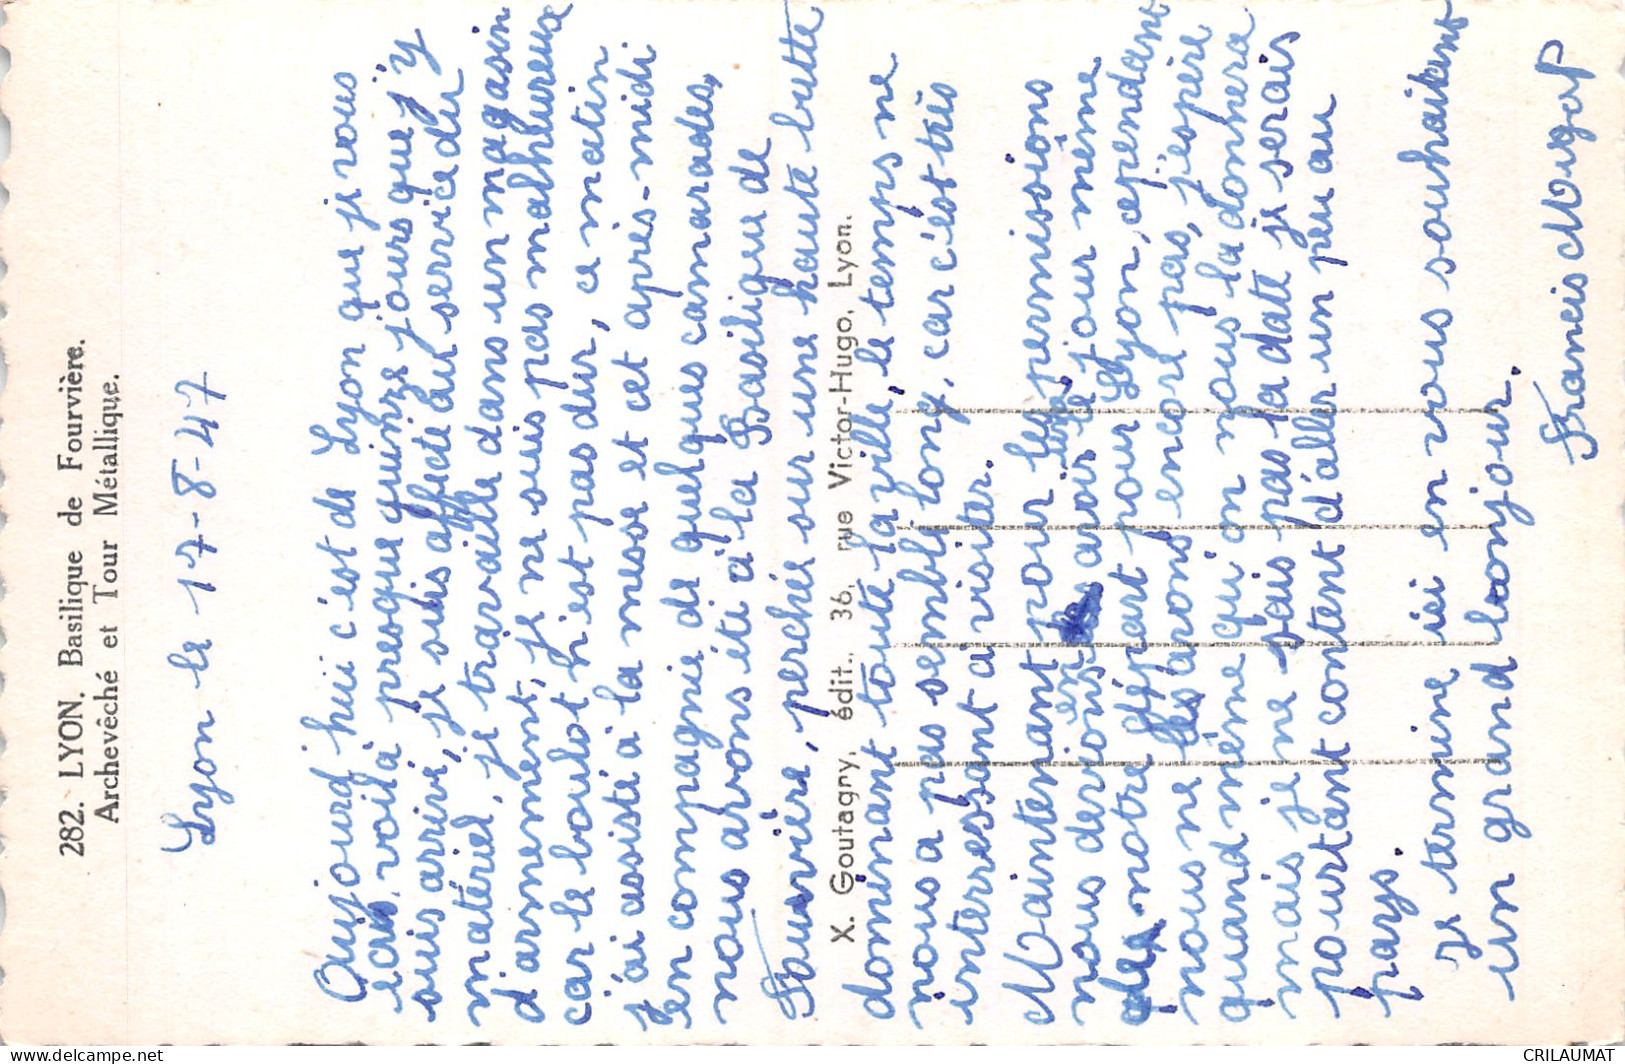 282. LYON. Basilique de Fourvière.
Archevêché et Tour Métallique.
Lyon le 17-8-47
Aujourd'hui c'est de Lyon que je vous
écris, voilà presque quinze jours que j'y
suis arrivé, je suis affecté au service du
matériel, je travaille dans un magasin
d'armement, je ne suis pas malheureux
car le boulot n'est pas dur, ce matin
j'ai assisté à la messe et cet après-midi
en compagnie de quelques camarades,
nous avons été à la Basilique de
Fourvière, perchée sur une haute butte
X. Goutagny, édit., 36, rue Victor-Hugo, Lyon.
dominant toute la ville, le temps ne
nous a pas semblé long, car c'est très
interressant a visiter.
Maintenant pour les permissions
nous devions en avoir une le jour même
de notre départ pour Lyon, cependant
nous ne les avons encore pas, j'espère
quand même qu'on nous la donnera
mais je ne sais pas la date je serais
pourtant content d'aller un peu au
pays.
Je termine ici en vous souhaitant
un grand bonjour.
Francis
CRILAUMAT